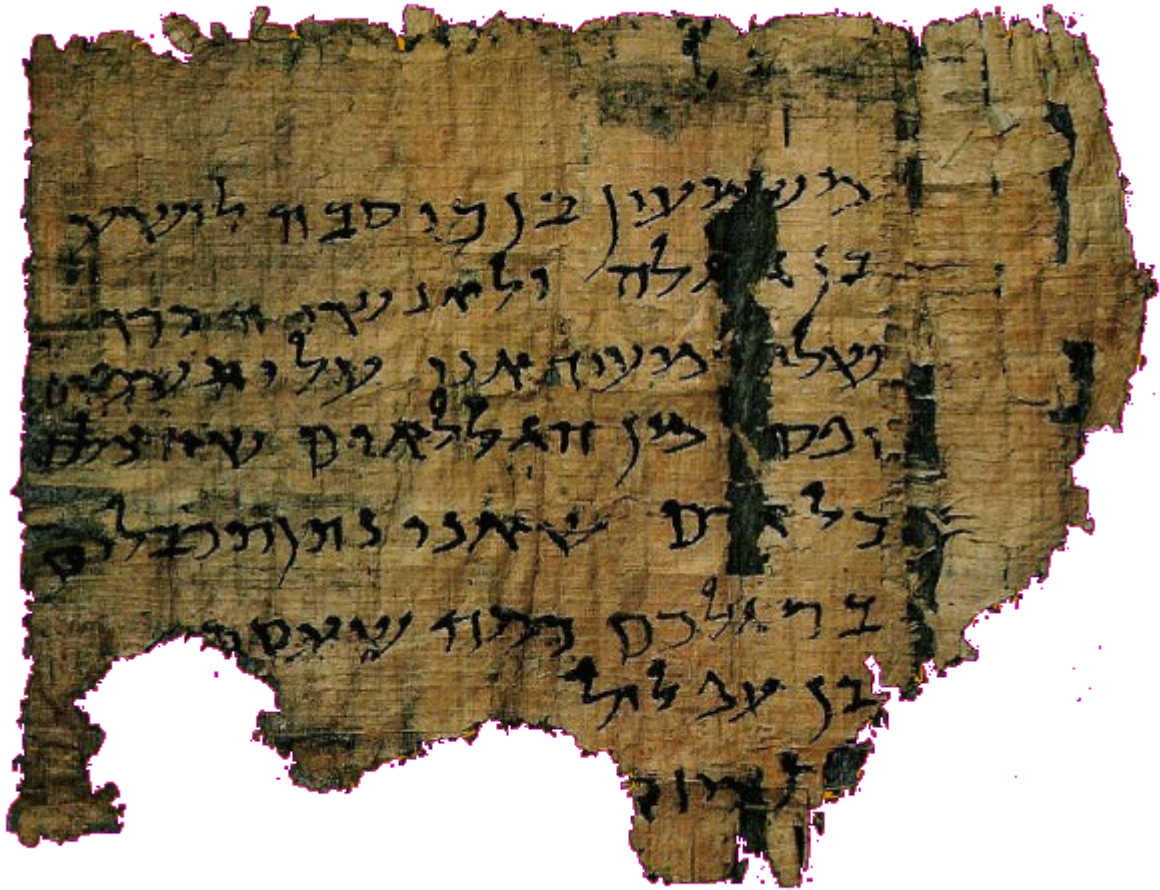 משמעון בן כוסבה לישע
בן גלגלה ולאנשי הכרך
שלום מעיד אני עלי תשמים
יפס מן הגללאים שהצלכם
כל אדם שאני נתן תכבלים
ברגלכם כמה שעסת
בן עפלול